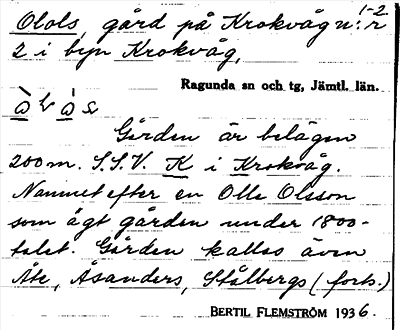 Olols, gård på Krokvåg n:r 1-2
2 i byn Krokvåg,
Ragunda sn och tg, Jämtl. län.
Gården är belägen
200 m. S.S.V. K i Krokvåg.
Namnet efter en Olle Olsson
som ägt gården under 1800-
talet. Gården kallas även
Åte, Åsanders, Stålbergs (forts.)
BERTIL FLEMSTRÖM 1936.